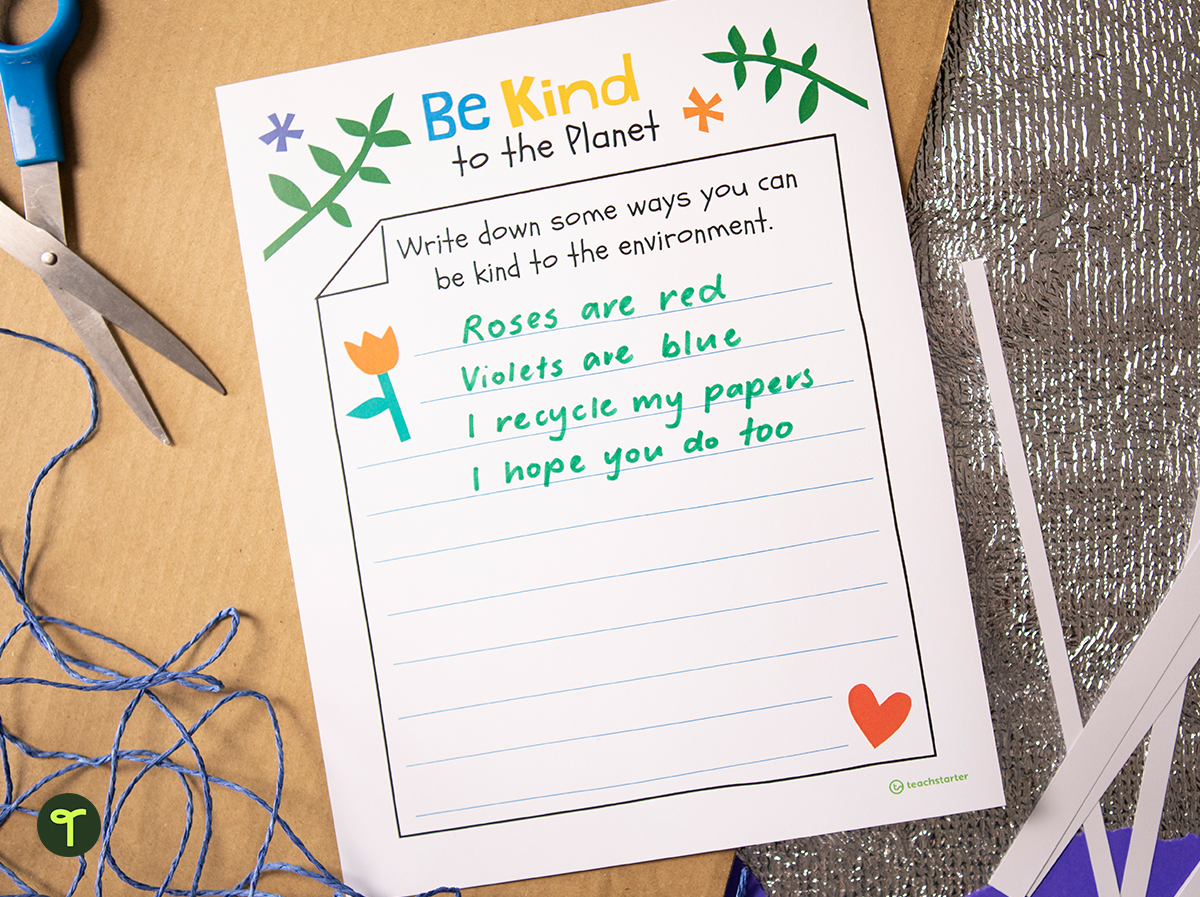 Be Kind
to the Planet
Write down some ways you can
be kind to the environment.
Roses are red
Violets are blue
I recycle my papers
I hope you do too
teachstarter